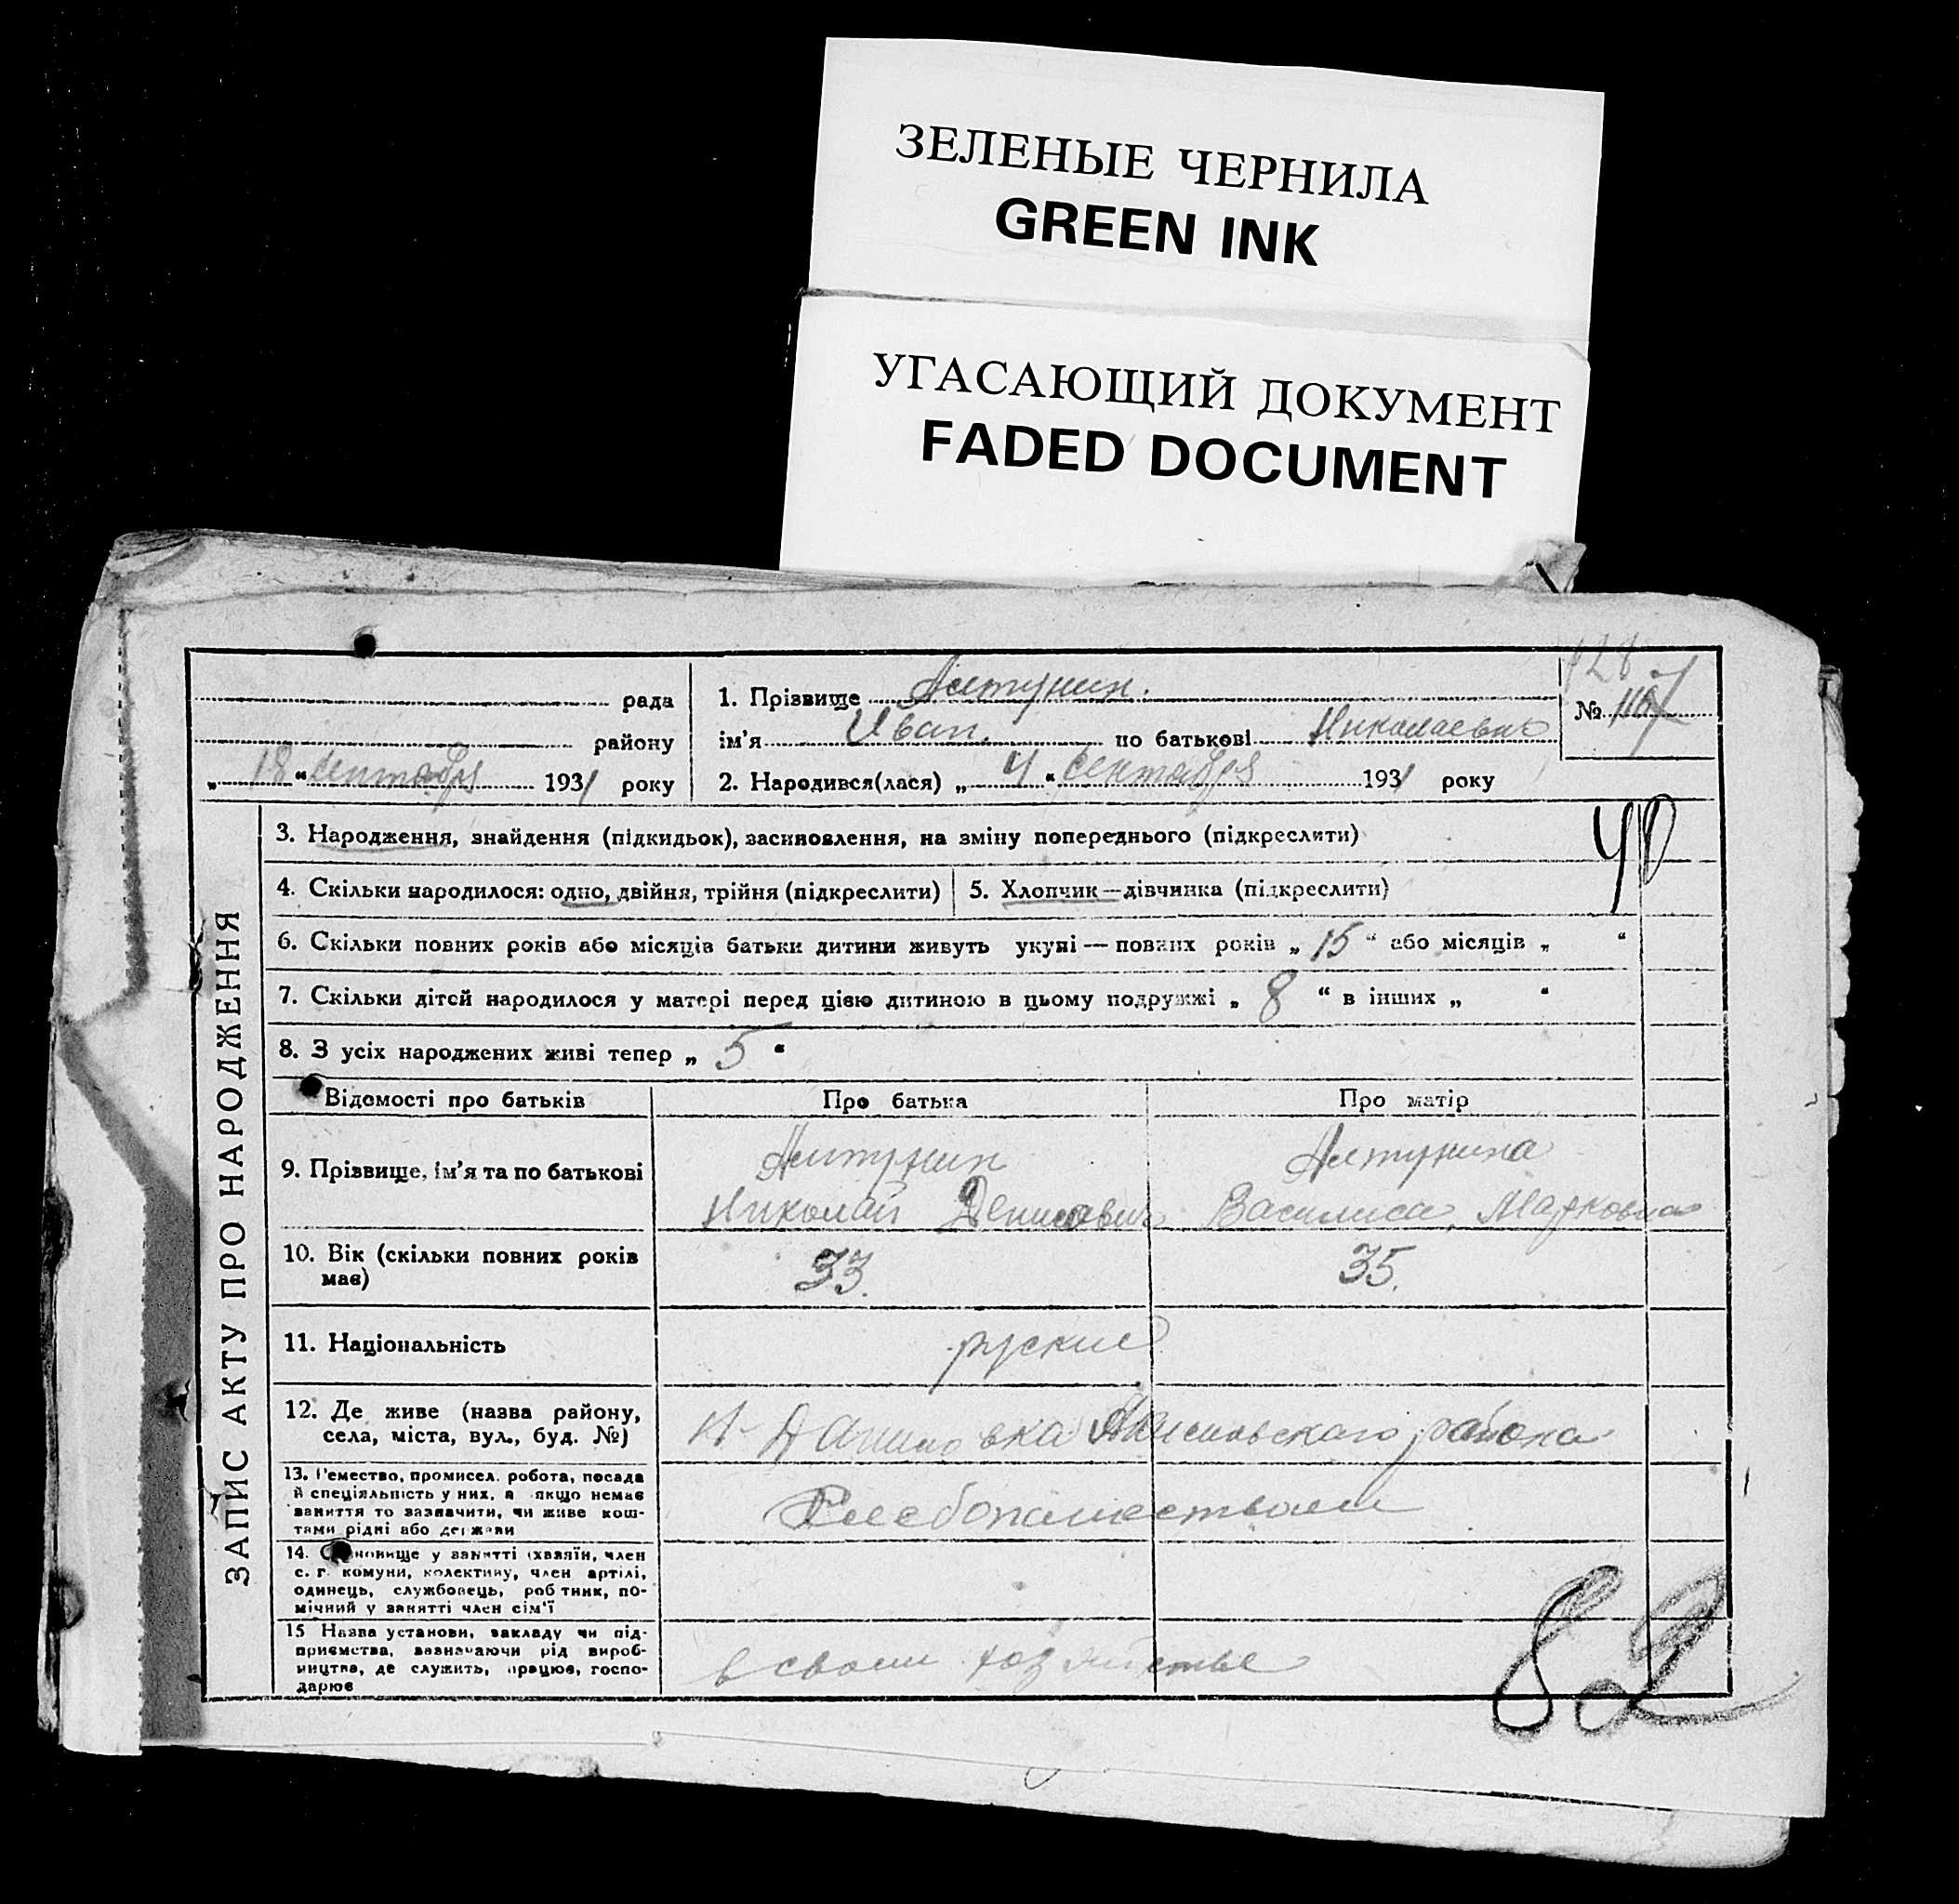 ЗЕЛЕНЫЕ ЧЕРНИЛА
GREEN INK
УГАСАЮЩИЙ ДОКУМЕНТ
FADED DOCUMENT
128
рада
району
„ 18 “ сентября 1931 року
1. Прізвище Алтунин.
ім’я Иван. по батькові Николаевич
2. Народився(лася) „ 4 “ сентября 1931 року
№ 116
ЗАПИС АКТУ ПРО НАРОДЖЕННЯ
3. Народження, знайдення (підкидьок), засиновлення, на зміну попереднього (підкреслити)
4. Скільки народилося: одно, двійня, трійня (підкреслити) 5. Хлопчик—дівчинка (підкреслити)
6. Скільки повних років або місяців батьки дитини живуть укупі — повних років „ 15 “ або місяців „ “
7. Скільки дітей народилося у матері перед цією дитиною в цьому подружжі „ 8 “ в інших „ “
8. З усіх народжених живі тепер „ 5 “
Відомості про батьків Про батька Про матір
9. Прізвище, ім’я та по батькові
Алтунин
Николай Денисович
Алтунина
Василиса Марковна
10. Вік (скільки повних років
має)
33. 35.
11. Національність
руские
12. Де живе (назва району,
села, міста, вул., буд. №)
района
13. Ремество, промисел, робота, посада
й спеціяльність у них, а якщо немає
заняття то зазначити, чи живе кош-
тами рідні або держави
Хлебопашеством
14. Становище у занятті (хазяїн, член
с. г. комуни, колективу, член артілі,
одинець, службовець, робітник, по-
мічний у занятті член сім’ї
15 Назва установи, закладу чи під-
приємства, зазначаючи рід вироб-
ництва, де служить, працює, госпо-
дарює
в своем хозяйстве
82